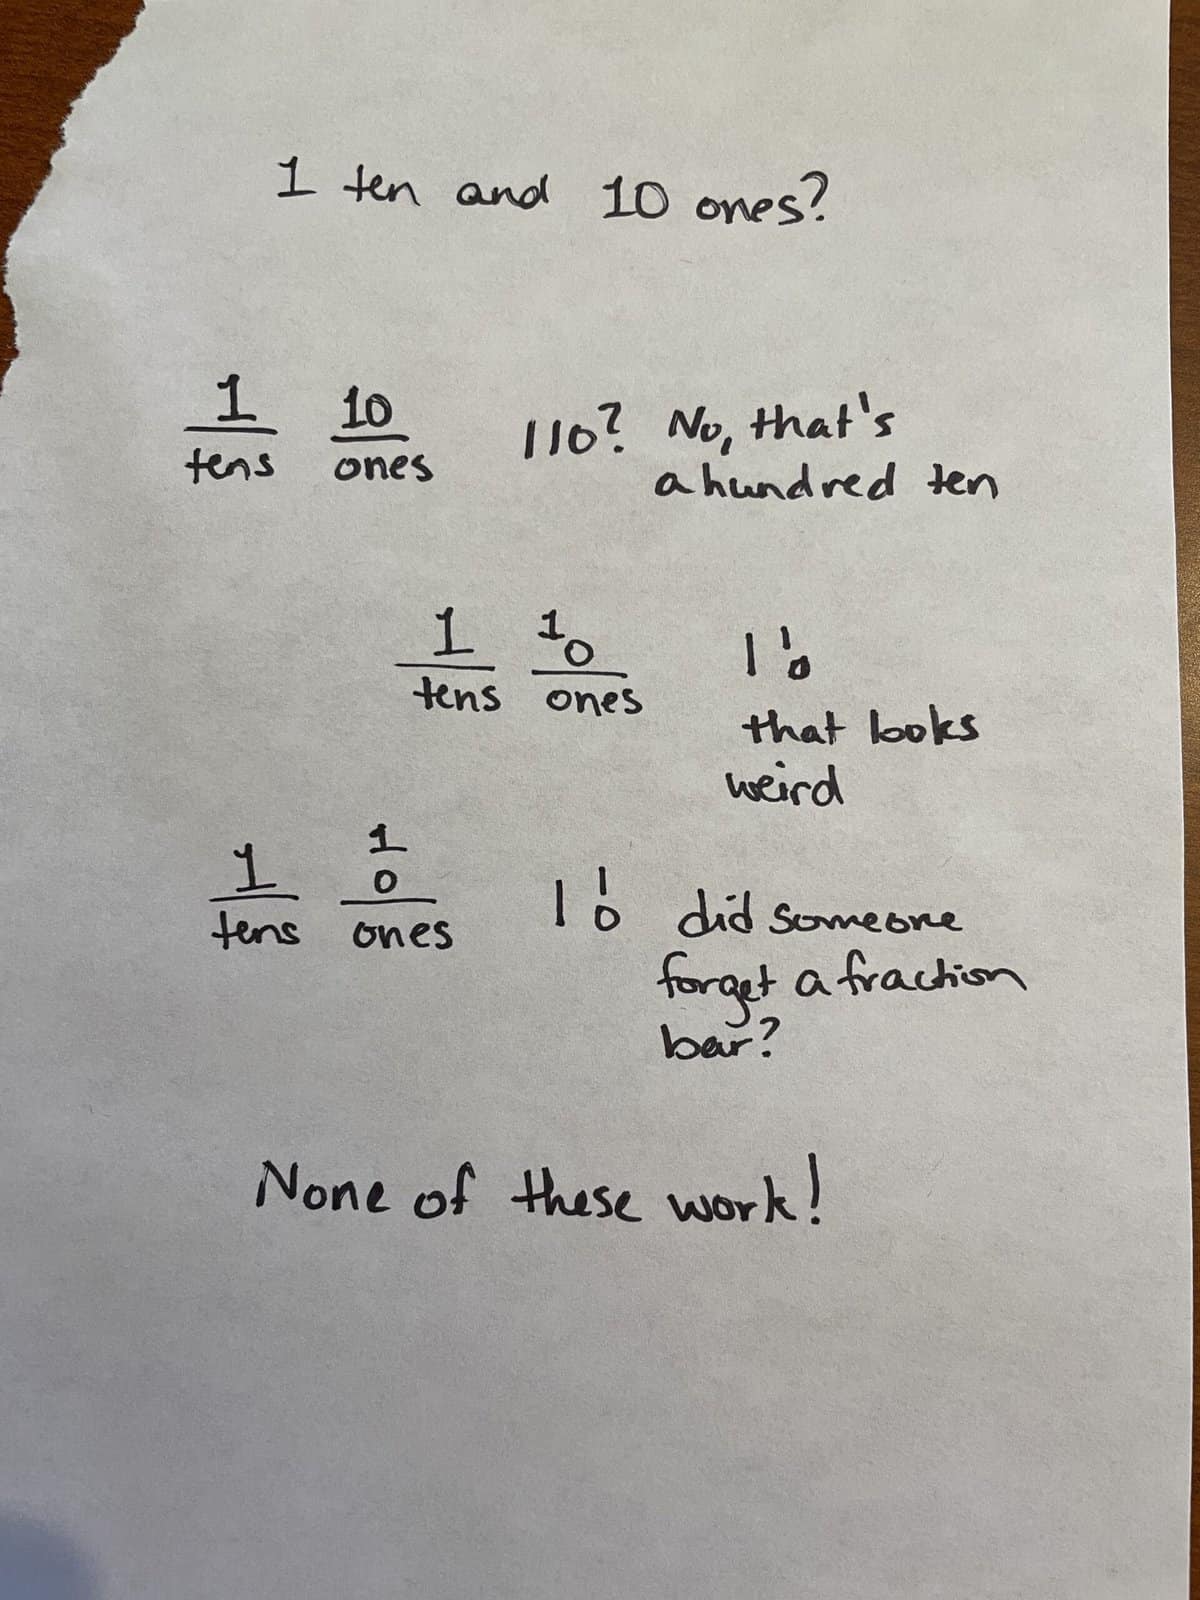 1 ten and 10 ones?
1 10 110? No, that's
tens ones a hundred ten
1 10 1 10
tens ones that looks
weird
1 1
0
1 10 did someone
tens ones forget a fraction
bar?
None of these work!